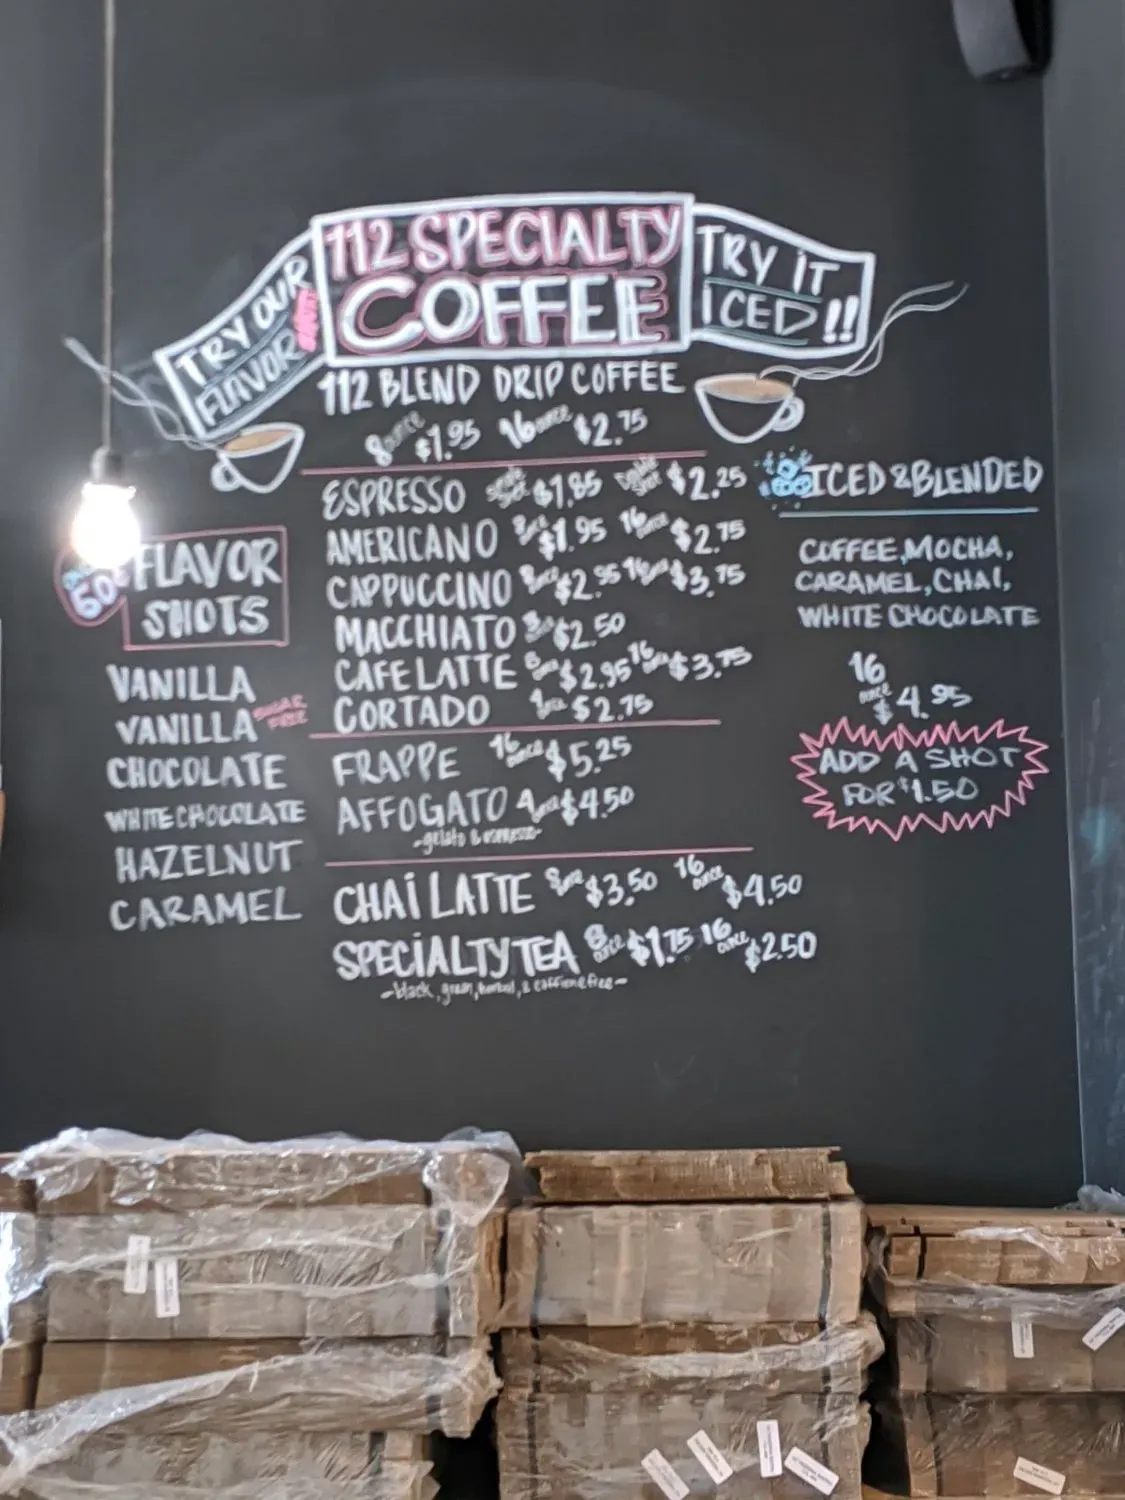 TRY OUR
FLAVOR
112 SPECIALTY
COFFEE
TRY IT
ICED!!
112 BLEND DRIP COFFEE
8 ounce $1.95 16 ounce $2.75
ESPRESSO single shot $1.85 Double shot $2.25
AMERICANO 8 ounce $1.95 16 ounce $2.75
CAPPUCCINO 8 ounce $2.95 16 ounce $3.75
MACCHIATO $2.50
CAFE LATTE 8 ounce $2.95 16 ounce $3.75
CORTADO $2.75
FRAPPE 16 ounce $5.25
AFFOGATO 4 ounce $4.50
-gelato & espresso-
CHAI LATTE 8 ounce $3.50 16 ounce $4.50
SPECIALTY TEA 8 ounce $1.75 16 ounce $2.50
-black, green, herbal, & caffiene free-
50
FLAVOR
SHOTS
VANILLA
VANILLA SUGAR FREE
CHOCOLATE
WHITE CHOCOLATE
HAZELNUT
CARAMEL
ICED & BLENDED
COFFEE, MOCHA,
CARAMEL, CHAI,
WHITE CHOCOLATE
16
ounce
$4.95
ADD A SHOT
FOR $1.50